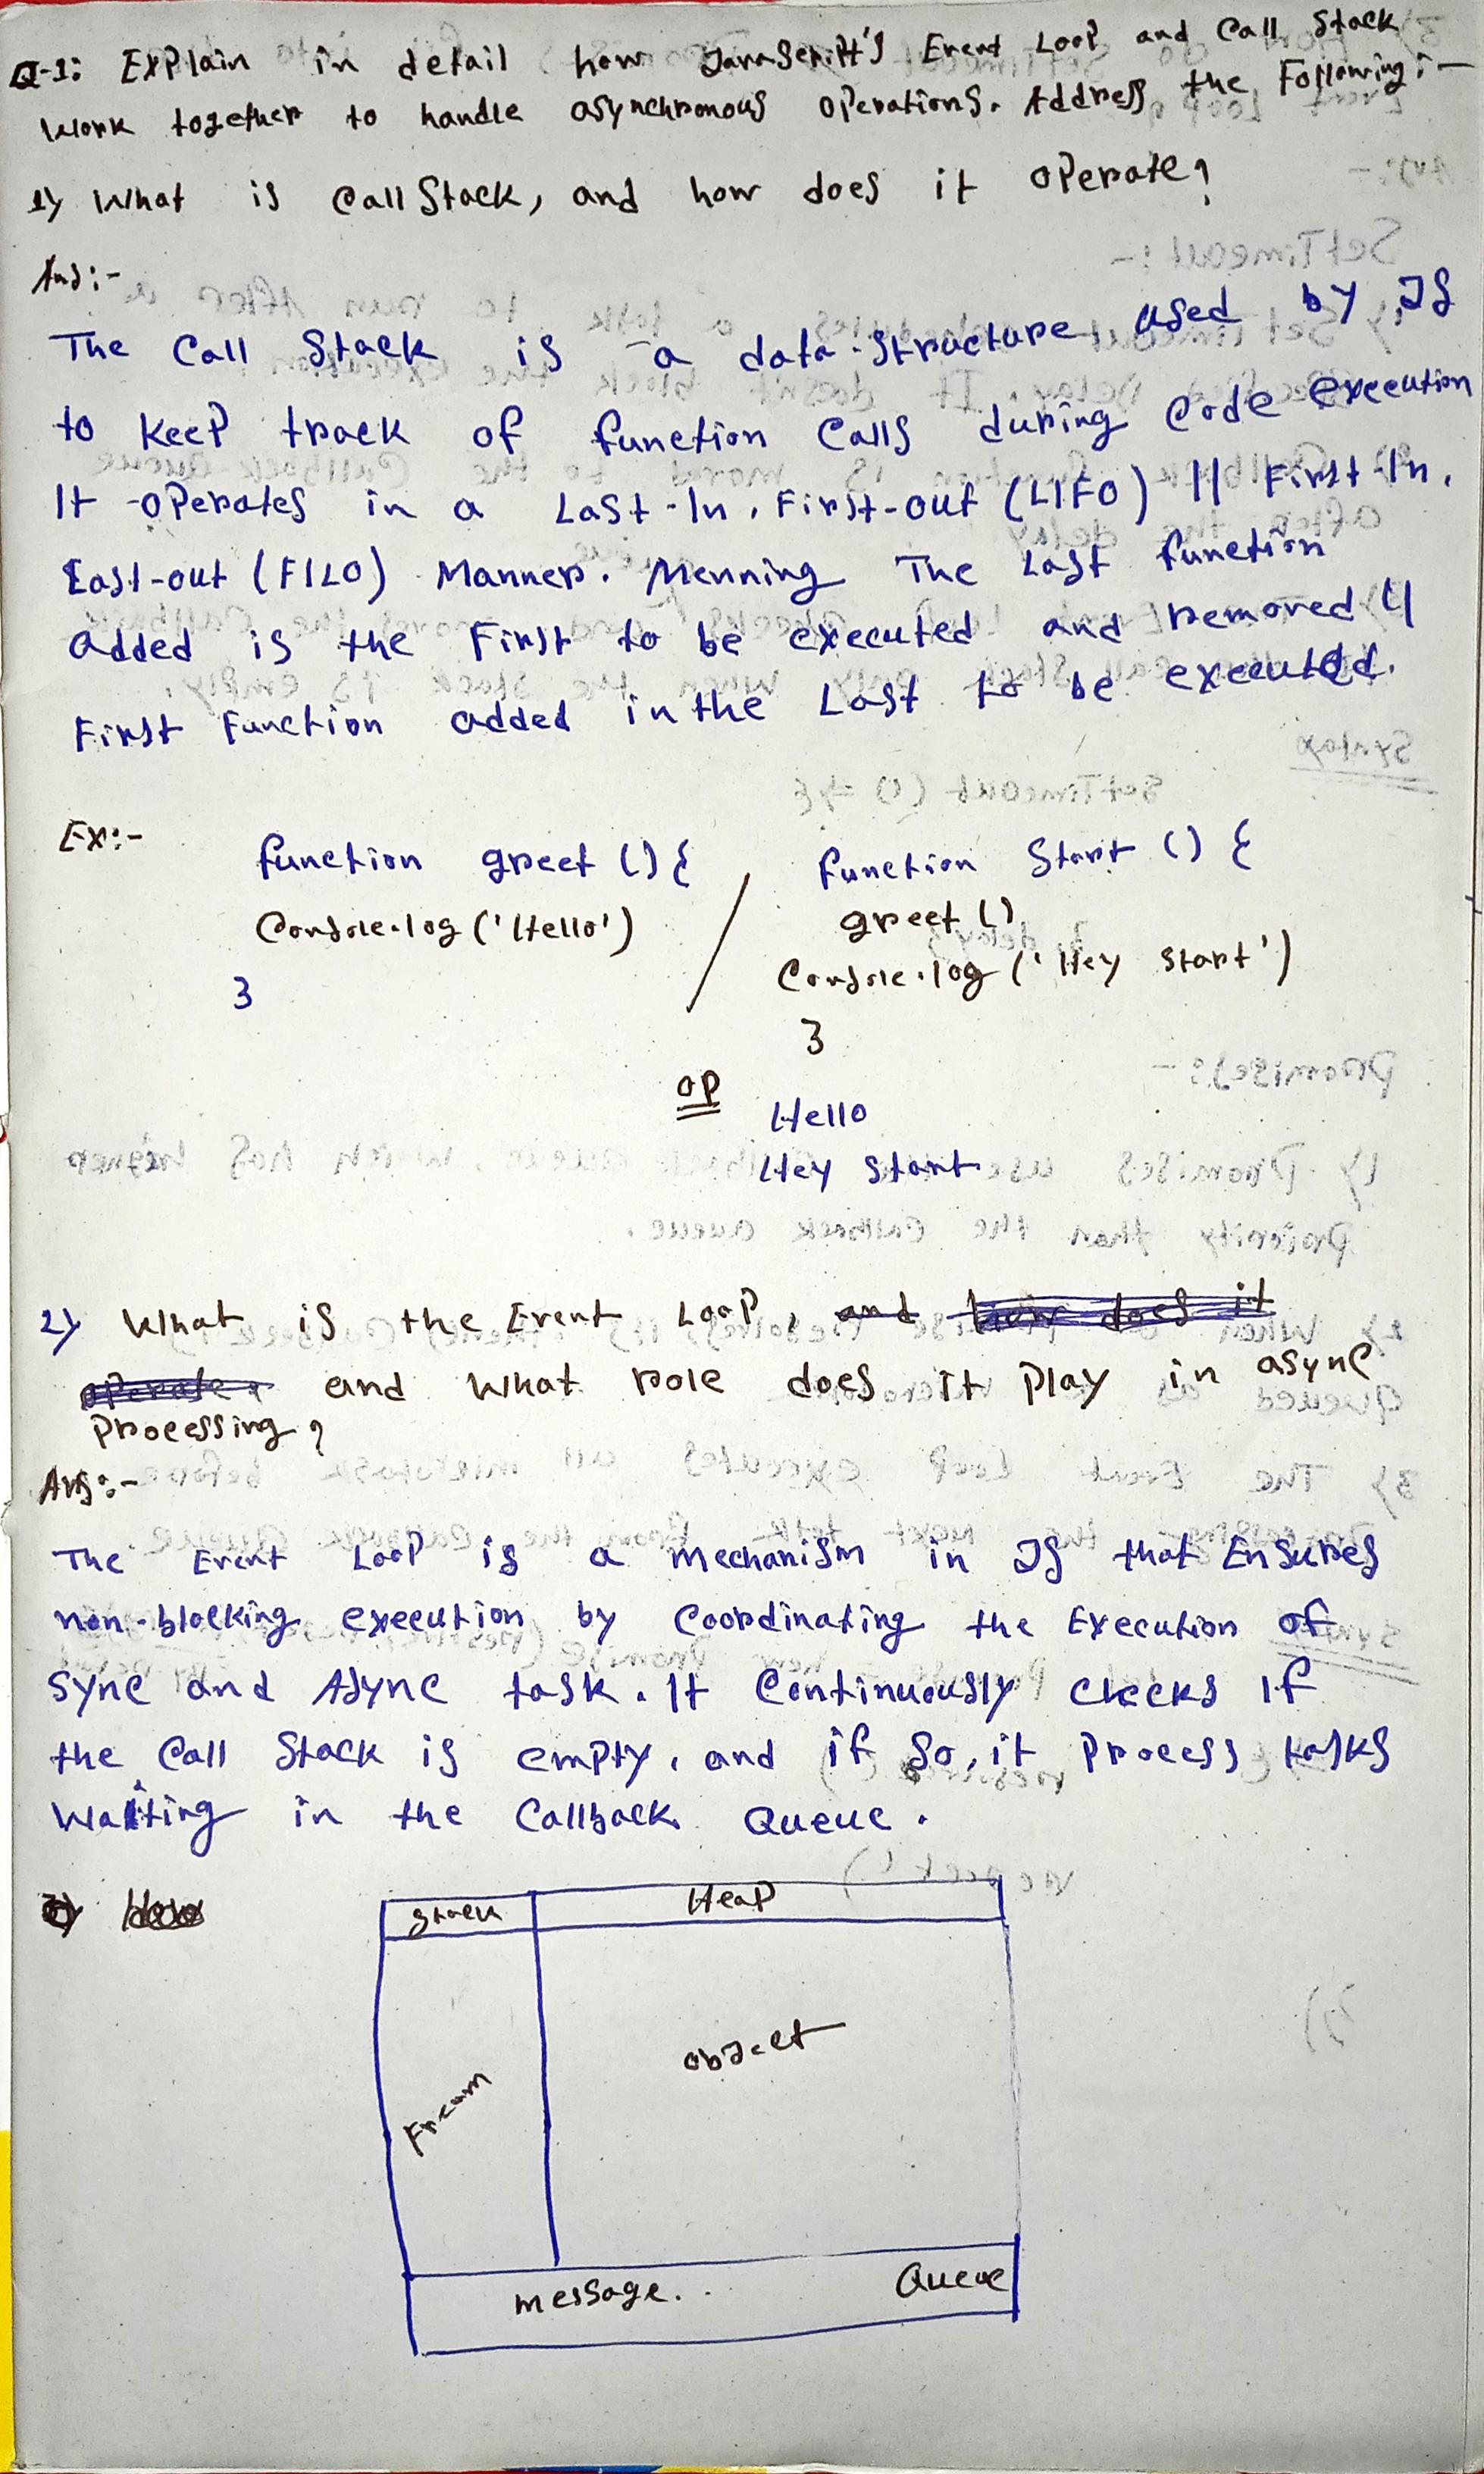 Q-1: Explain in detail how JavaScript's Event Loop and Call Stack
work together to handle asynchronous operations. Address the Following:-
1) What is Call Stack, and how does it operate?
Ans:-
The Call Stack is a data-structure used by JS
to keep track of function Calls during Code execution
It operates in a Last-In, First-out (LIFO) || First-In,
Last-out (FILO) Manner. Menning The Last function
added is the First to be executed and removed ||
First Function added in the Last to be executed.
Ex:-
function greet () { / function Start () {
Console.log ('Hello') greet ()
} Console.log ('Hey start')
}
OP
Hello
Hey Start
2) What is the Event Loop, and how does it
operate? and What role does it play in async
Processing?
Ans:-
The Event Loop is a mechanism in JS that Ensures
non-blocking execution by Coordinating the Execution of
Sync and Async task. It Continuously checks If
the Call Stack is empty, and if So, it Process tasks
Waiting in the Callback Queue.
Stack Heap
Fream object
message... Queue